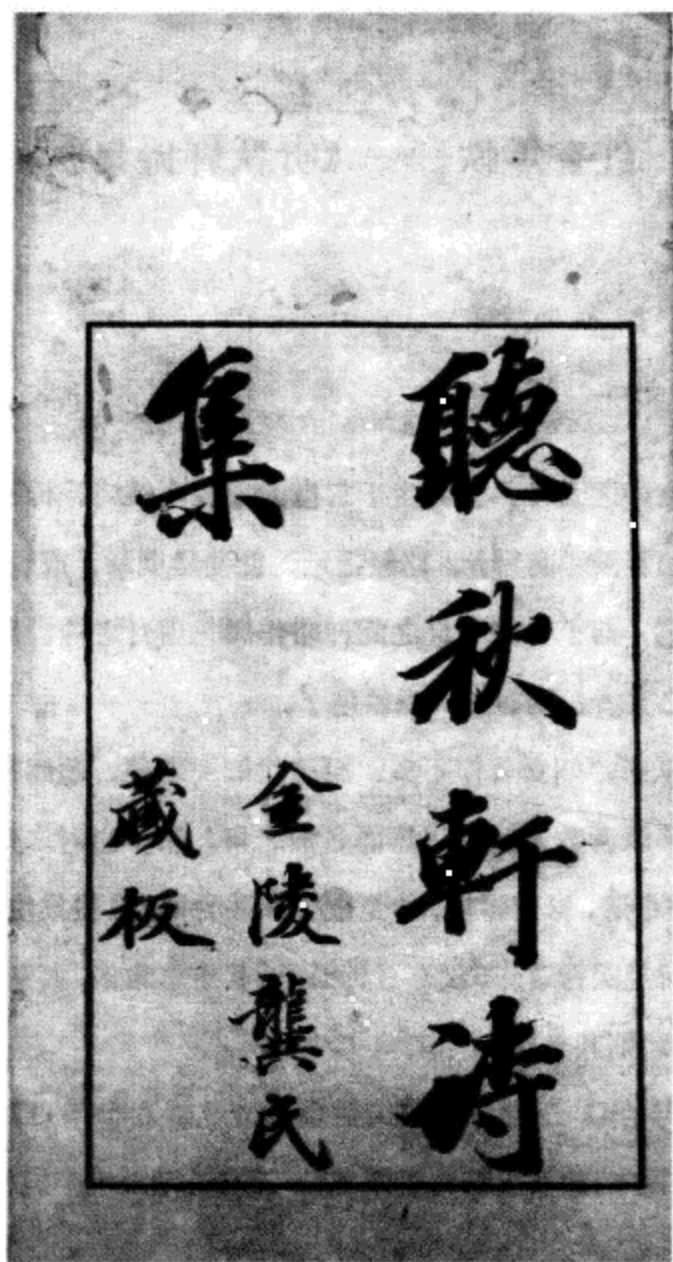 聽秋軒詩
集
金陵龔氏
藏板